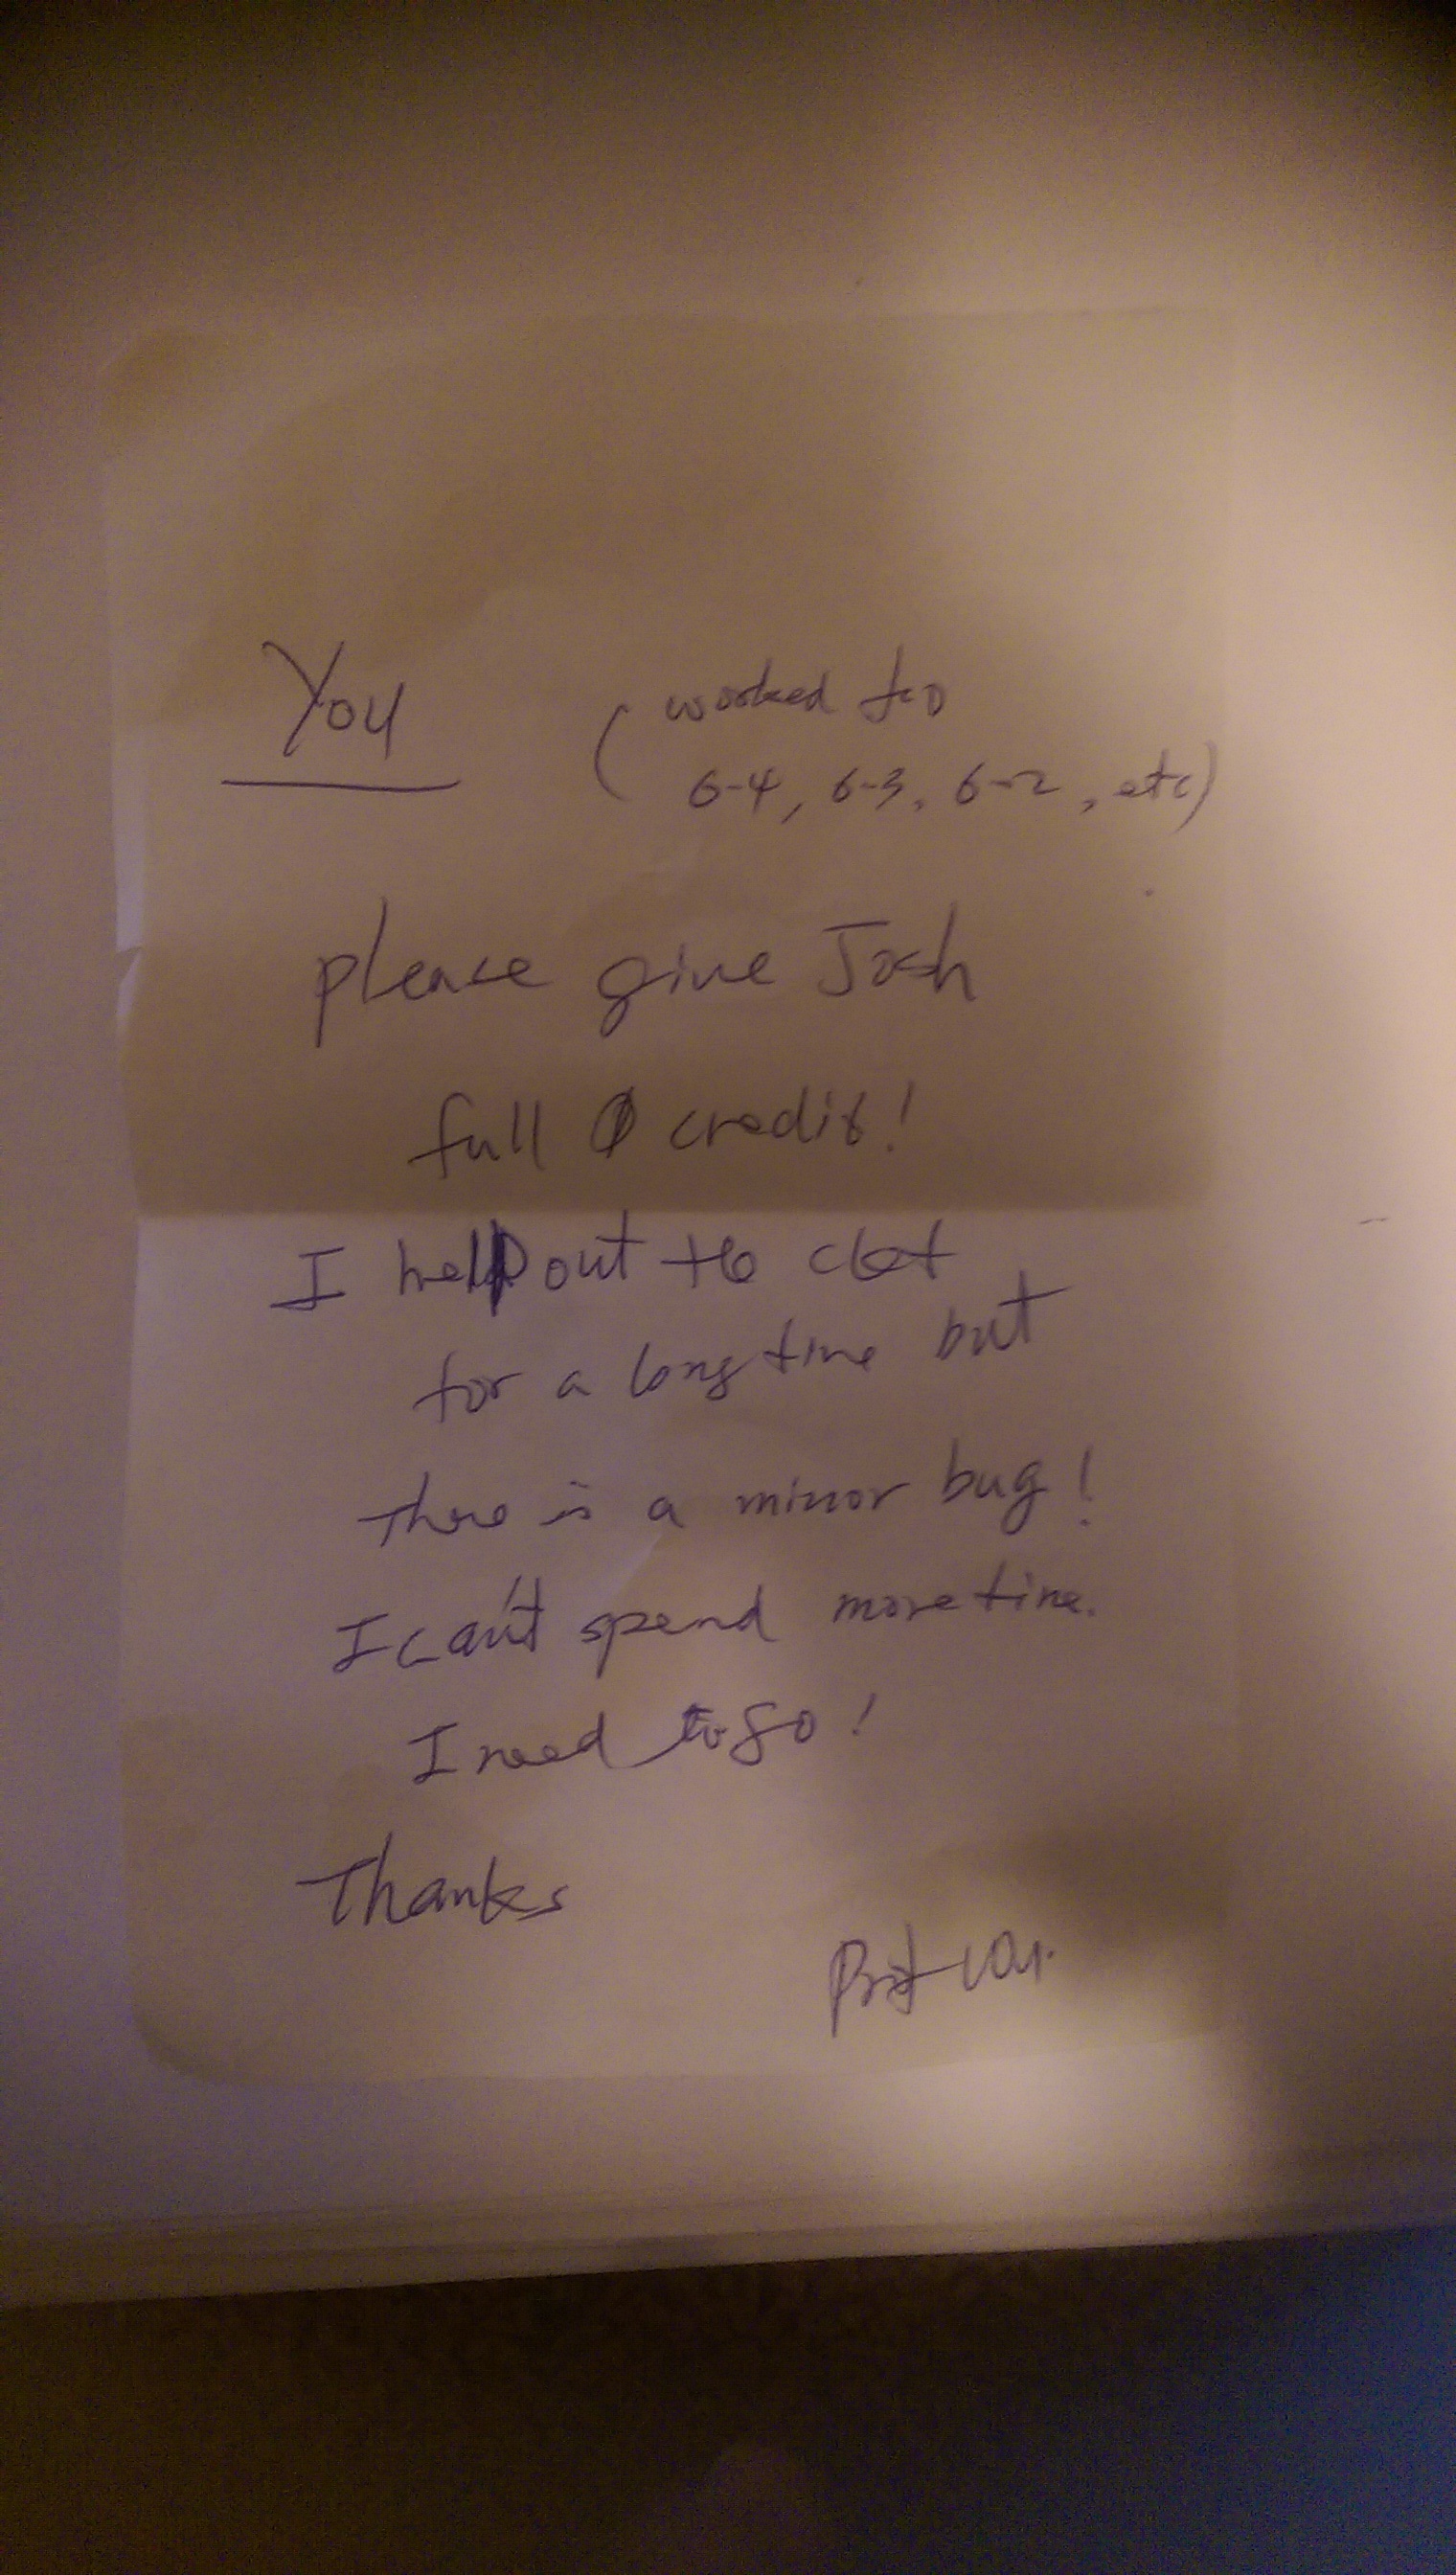 You (worked for
6-4, 6-3, 6-2, etc)
please give Josh
full credit!
I help out to
for a long time but
There is a minor bug!
I can't spend more time.
I need to go!
Thanks
Prof